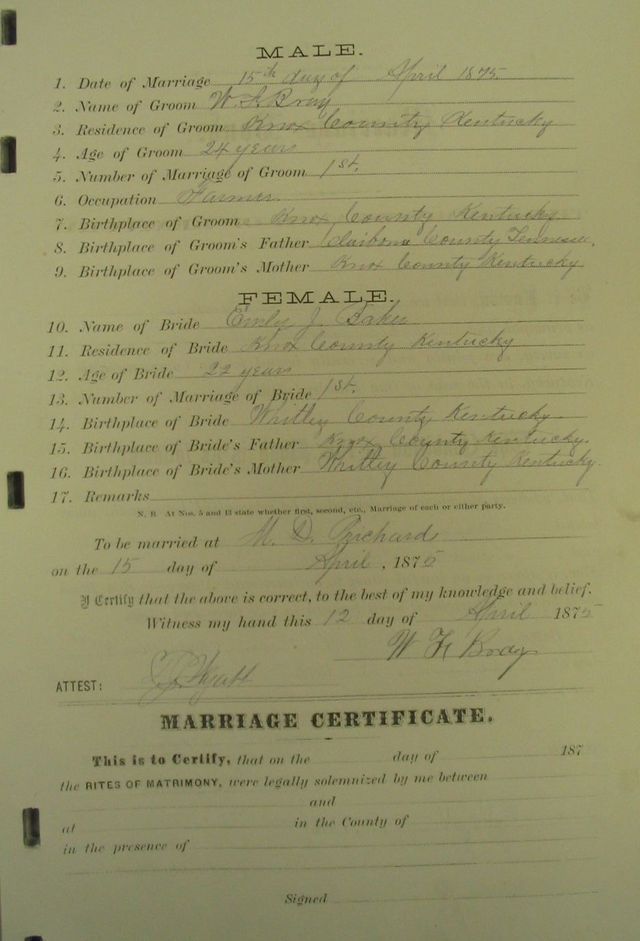 MALE.
1. Date of Marriage 15th day of April 1875
2. Name of Groom W F Bray
3. Residence of Groom Knox County Kentucky
4. Age of Groom 24 years
5. Number of Marriage of Groom 1st.
6. Occupation Farmer.
7. Birthplace of Groom Knox County Kentucky
8. Birthplace of Groom's Father Claiborne County Tennessee.
9. Birthplace of Groom's Mother Knox County Kentucky
FEMALE.
10. Name of Bride Emily J. Baker
11. Residence of Bride Knox County Kentucky
12. Age of Bride 22 years
13. Number of Marriage of Bride 1st.
14. Birthplace of Bride Whitley County Kentucky
15. Birthplace of Bride's Father Knox County Kentucky.
16. Birthplace of Bride's Mother Whitley County Kentucky.
17. Remarks
N. B. At Nos. 5 and 13 state whether first, second, etc., Marriage of each or either party.
To be married at M. D.
on the 15 day of April, 1875
I Certify that the above is correct, to the best of my knowledge and belief.
Witness my hand this 12 day of April 1875
W F Bray
ATTEST: Wyatt
MARRIAGE CERTIFICATE.
This is to Certify, that on the day of 187
the RITES OF MATRIMONY, were legally solemnized by me between
and
at in the County of
in the presence of
Signed